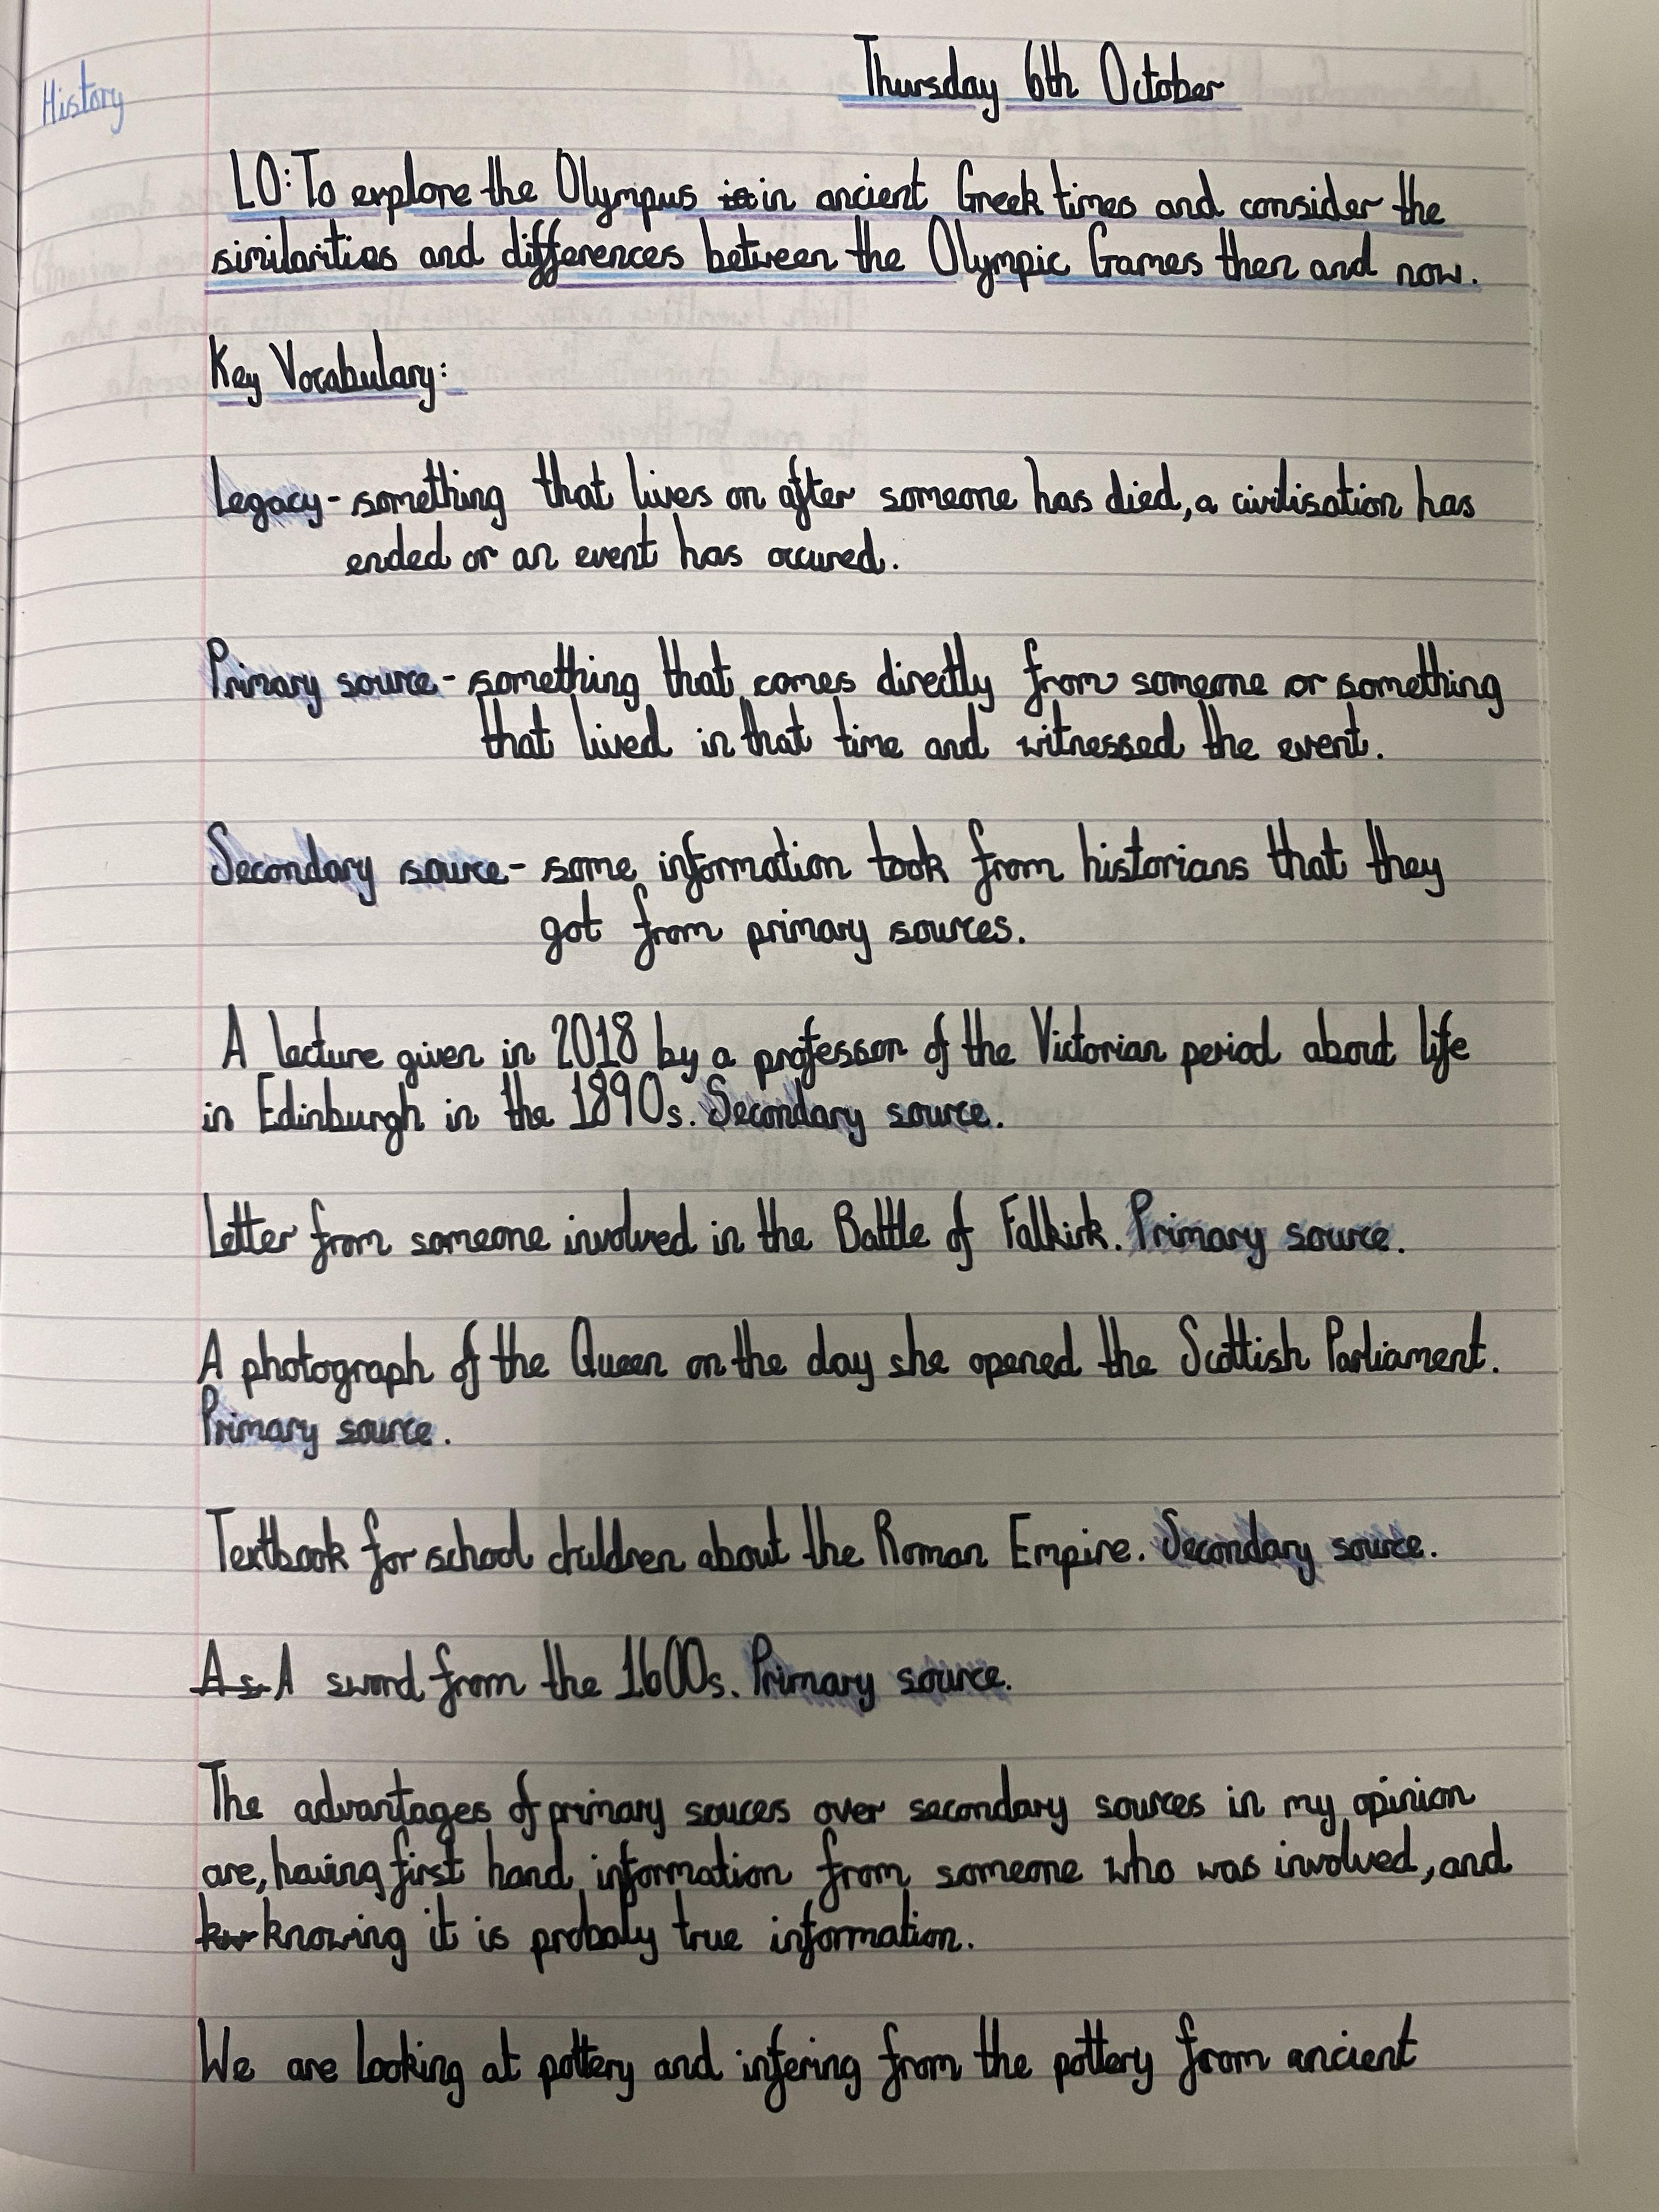 History
Thursday 6th October
LO: To explore the Olympus in ancient Greek times and consider the
similarities and differences between the Olympic Games then and now.
Key Vocabulary:
Legacy - something that lives on after someone has died, a civilisation has
ended or an event has occured.
Primary source - something that comes directly from someone or something
that lived in that time and witnessed the event.
Secondary source - some information took from historians that they
got from primary sources.
A lecture given in 2018 by a professor of the Victorian period about life
in Edinburgh in the 1890s. Secondary source.
Letter from someone involved in the Battle of Falkirk. Primary source.
A photograph of the Queen on the day she opened the Scottish Parliament.
Primary source.
Textbook for school children about the Roman Empire. Secondary source.
A s A sword from the 1600s. Primary source.
The advantages of primary souces over secondary sources in my opinion
are, having first hand information from someone who was involved, and
knowing it is probaly true information.
We are looking at pottery and infering from the pottery from ancient